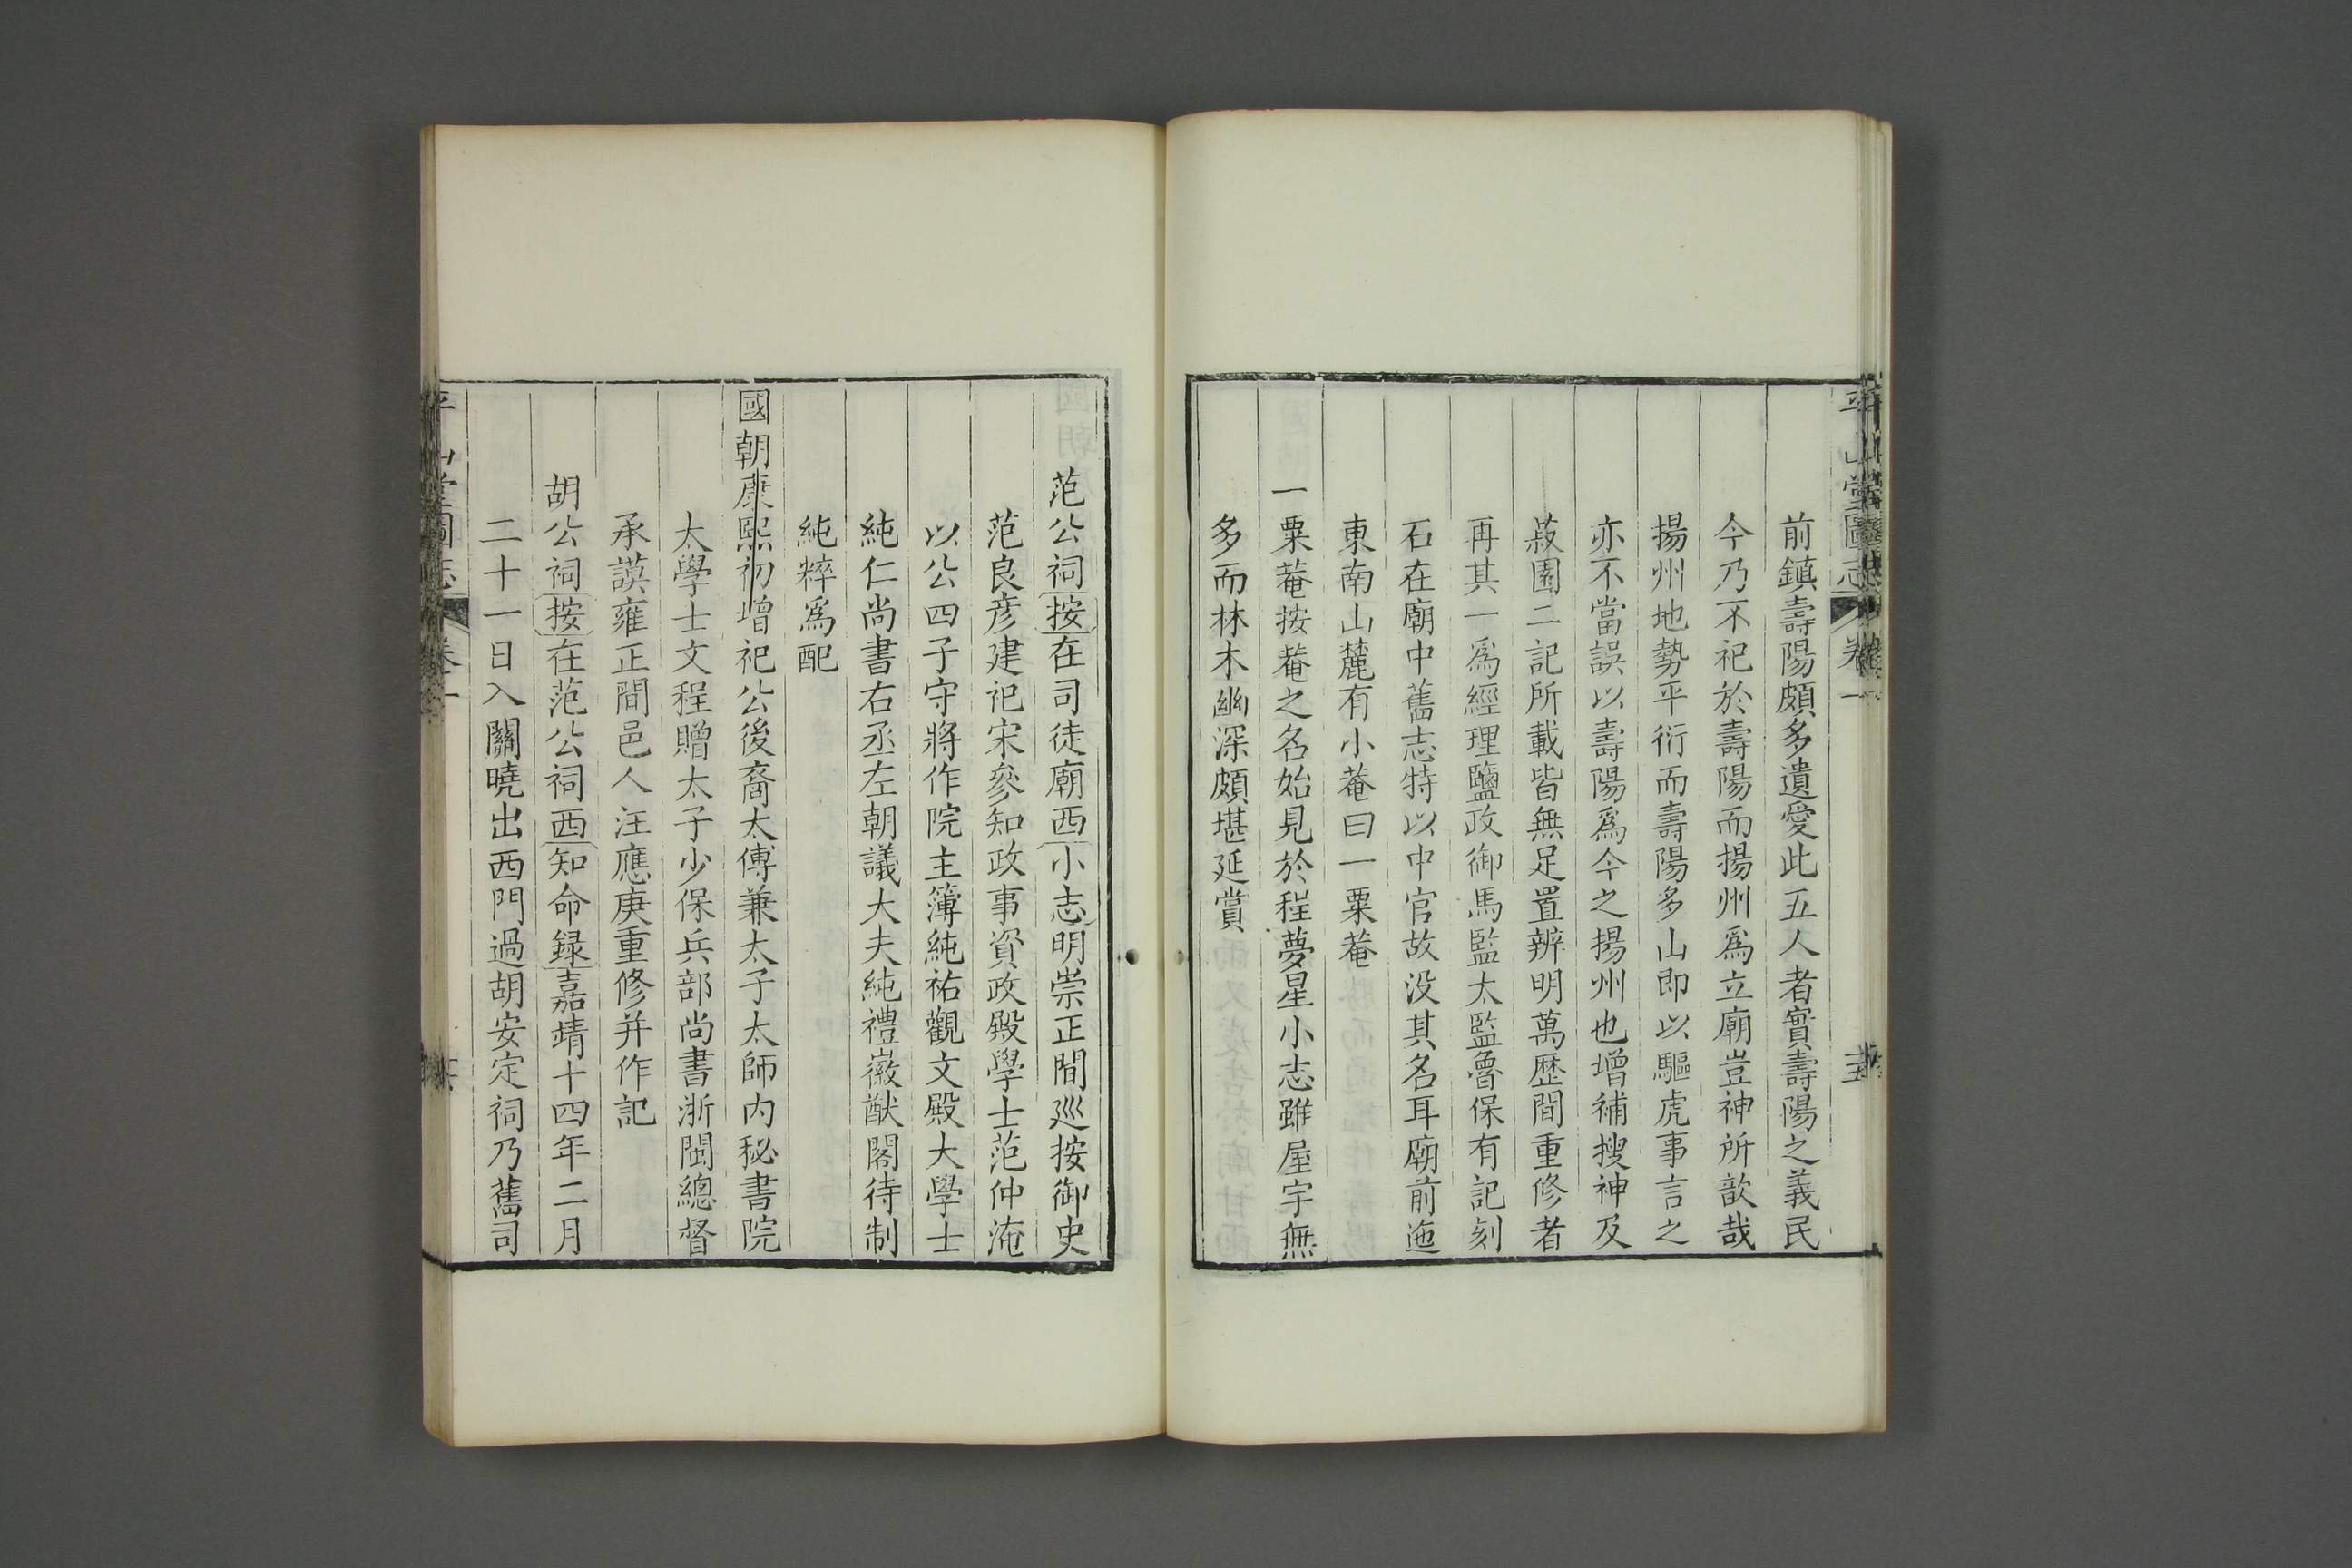 平山堂圖志 卷一
前鎮壽陽頗多遺愛此五人者實壽陽之義民
今乃不祀於壽陽而揚州爲立廟豈神所歆哉
揚州地勢平衍而壽陽多山即以驅虎事言之
亦不當誤以壽陽爲今之揚州也增補搜神及
菽園二記所載皆無足置辨明萬歷間重修者
再其一爲經理鹽政御馬監太監魯保有記刻
石在廟中舊志特以中官故没其名耳廟前迤
東南山麓有小菴曰一粟菴
一粟菴按菴之名始見於程夢星小志雖屋宇無
多而林木幽深頗堪延賞
范公祠按在司徒廟西小志明崇正間廵按御史
范良彦建祀宋參知政事資政殿學士范仲淹
以公四子守將作院主簿純祐觀文殿大學士
純仁尚書右丞左朝議大夫純禮㣲猷閣待制
純粹爲配
國朝康熙初增祀公後裔太傅兼太子太師内秘書院
太學士文程贈太子少保兵部尚書浙閩總督
承謨雍正間邑人汪應庚重修并作記
胡公祠按在范公祠西知命録嘉靖十四年二月
二十一日入關曉出西門過胡安定祠乃舊司